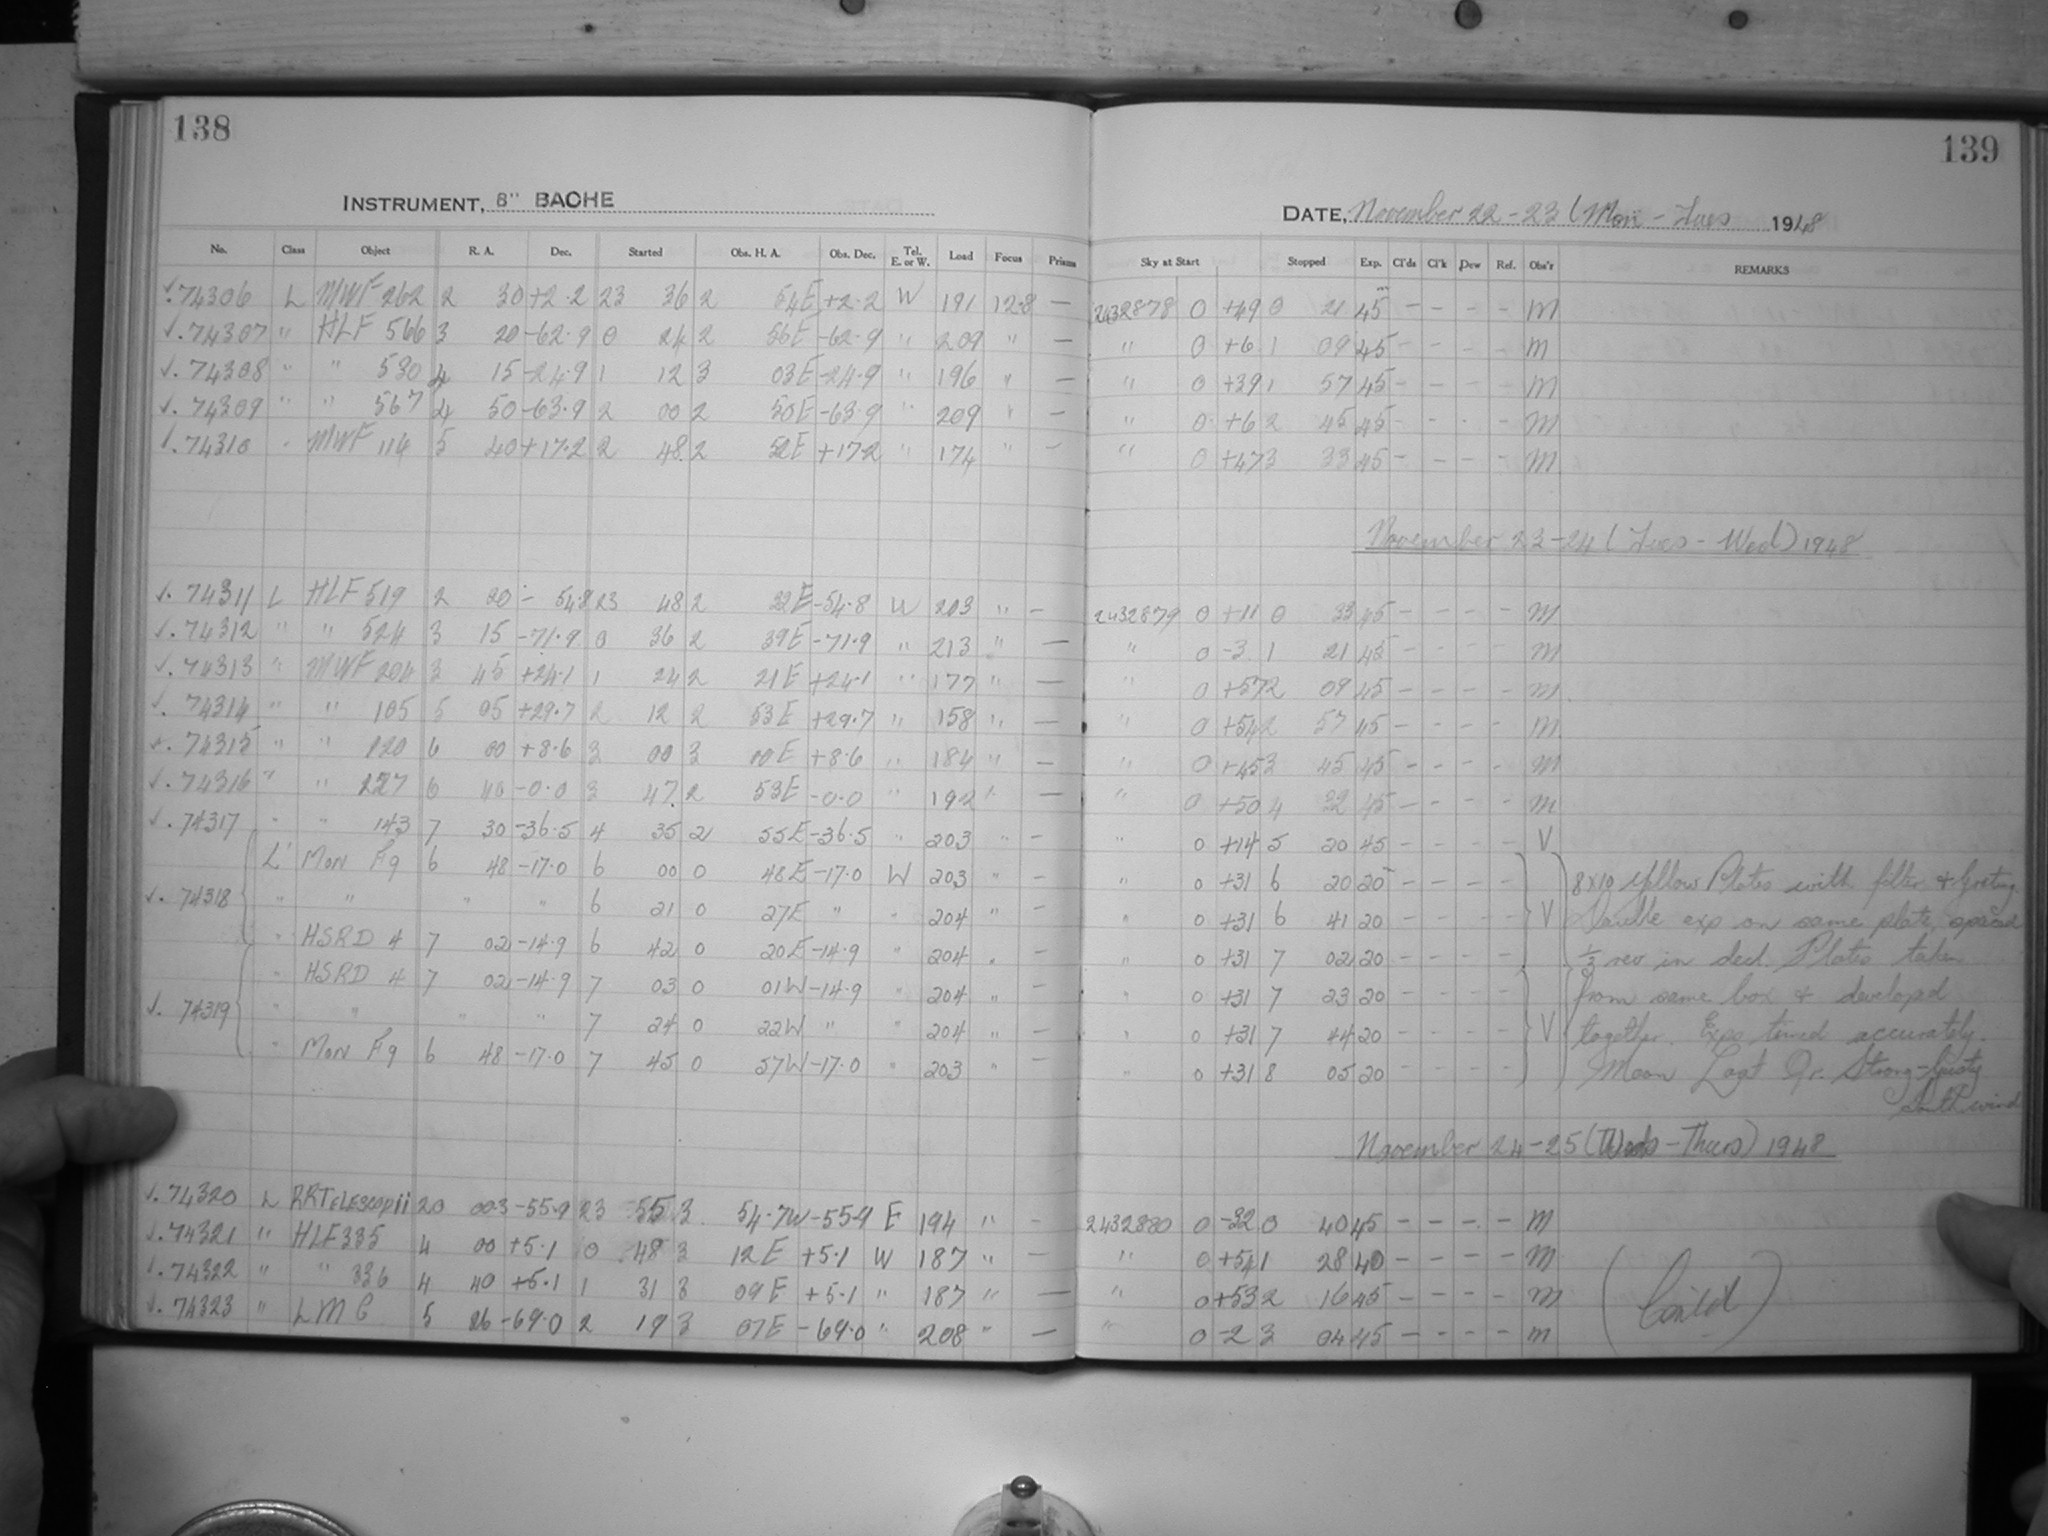 138
INSTRUMENT, 8" BACHE
No. Class Object R. A. Dec. Started Obs. H. A. Obs. Dec. Tel. E. or W. Load Focus Prisms
√. 74306 L MWF 262 2 30 +2.2 23 36 2 54E +2.2 W 191 12.8 —
√. 74307 " HLF 566 3 20 -62.9 0 24 2 56E -62.9 " 209 " —
√. 74308 " " 530 4 15 -24.9 1 12 3 03E -24.9 " 196 " —
√. 74309 " " 567 4 50 -63.9 2 00 2 50E -63.9 " 209 " —
√. 74310 " MWF 114 5 40 +17.2 2 48 2 52E +17.2 " 174 " —
√. 74311 L HLF 519 2 20 - 54.8 23 48 2 32E -54.8 W 203 " —
√. 74312 " " 524 3 15 -71.9 0 36 2 39E -71.9 " 213 " —
√. 74313 " MWF 204 3 45 +24.1 1 24 2 21E +24.1 " 177 " —
√. 74314 " " 105 5 05 +29.7 2 12 2 53E +29.7 " 158 " —
√. 74315 " " 120 6 00 +8.6 3 00 3 00E +8.6 " 184 " —
√. 74316 " " 227 6 40 -0.0 3 47 2 53E -0.0 " 192 " —
√. 74317 " " 143 7 30 -36.5 4 35 2 55E -36.5 " 203 " —
L' Mon Fg 6 48 -17.0 6 00 0 48E -17.0 W 203 " —
√. 74318 " " " " 6 21 0 27E " " 204 " —
" HSRD 4 7 02 -14.9 6 42 0 20E -14.9 " 204 " —
" HSRD 4 7 02 -14.9 7 03 0 01W -14.9 " 204 " —
√. 74319 " " " " 7 24 0 22W " " 204 " —
" Mon Fg 6 48 -17.0 7 45 0 57W -17.0 " 203 " —
√. 74320 L RRTELESCOPii 20 00.3 -55.9 23 55 3 54.7W -55.9 E 194 " —
√. 74321 " HLF 335 4 00 +5.1 0 48 3 12E +5.1 W 187 " —
√. 74322 " " 336 4 40 +5.1 1 31 3 09E +5.1 " 187 " —
√. 74323 " LMC 5 26 -69.0 2 19 3 07E -69.0 " 208 " —
139
DATE, November 22-23 (Mon - Tues 1948
Sky at Start Stopped Exp. Cl'ds Cl'k Dew Ref. Obs'r REMARKS
2432878 0 +49 0 21 45 m - - - - M
" 0 +6 1 09 45 - - - - M
" 0 +39 1 57 45 - - - - M
" 0 +6 2 45 45 - - - - M
" 0 +47 3 33 45 - - - - M
November 23-24 (Tues - Wed) 1948
2432879 0 +11 0 33 45 - - - - M
" 0 -3 1 21 45 - - - - M
" 0 +57 2 09 45 - - - - M
" 0 +54 2 57 45 - - - - M
" 0 +45 3 45 45 - - - - M
" 0 +50 4 32 45 - - - - M
" 0 +14 5 20 45 - - - - V
" 0 +31 6 20 20 - - - - 8x10 Yellow Plates with filter & Grating
" 0 +31 6 41 20 - - - - V Double exp on same plate, spaced
" 0 +31 7 02 20 - - - - ½ rev in decl. Plates taken
" 0 +31 7 23 20 - - - - from same box & developed
" 0 +31 7 44 20 - - - - V together. Exps timed accurately.
" 0 +31 8 05 20 - - - - Moon Last Qr. Strong-Gusty
South wind
November 24-25 (Weds - Thurs) 1948
2432880 0 -32 0 40 45 - - - - M
" 0 +54 1 28 40 - - - - M
" 0 +53 2 16 45 - - - - M
" 0 -2 3 04 45 - - - - M
(Cont'd)